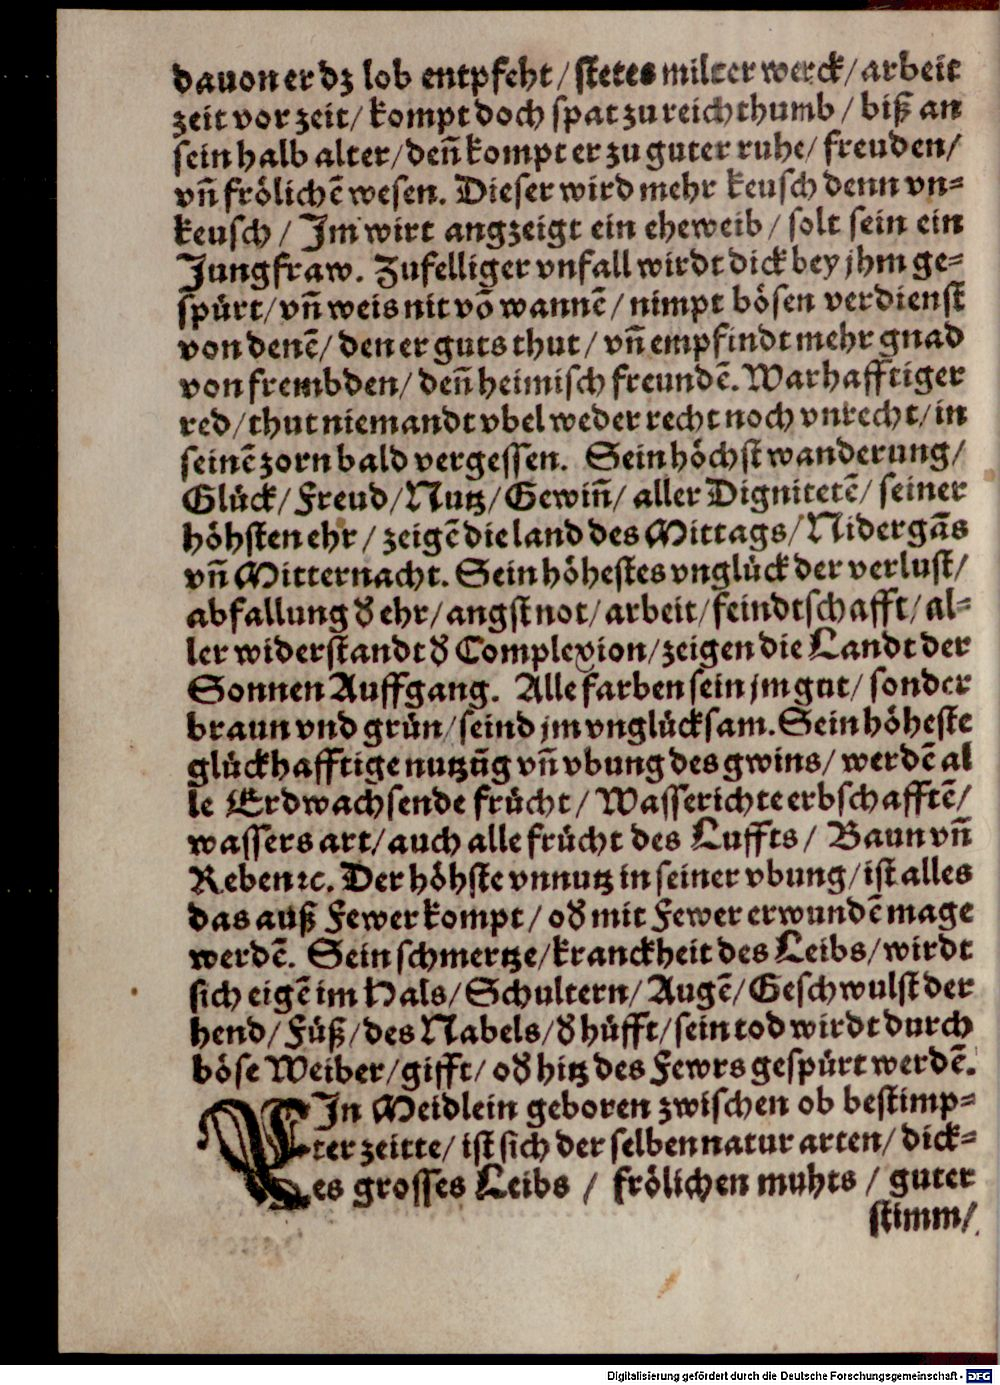 dauon er dz lob entpfeht / stetes milter werck / arbeit
zeit vor zeit / kompt doch spat zu reichthumb / biß an
sein halb alter / deñ kompt er zu guter ruhe / freuden /
vñ frölichē wesen. Dieser wird mehr keusch denn vn=
keusch / Im wirt angzeigt ein eheweib / solt sein ein
Jungfraw. Zufelliger vnfall wirdt dick bey jhm ge=
spürt / vñ weis nit vō wannē / nimpt bösen verdienst
von denē / den er guts thut / vñ empfindt mehr gnad
von frembden / deñ heimisch freundē. Warhafftiger
red / thut niemandt vbel weder recht noch vnrecht / in
seinē zorn bald vergessen. Sein höchst wanderung /
Glück / Freud / Nutz / Gewiñ / aller Dignitetē / seiner
höhsten ehr / zeigē die land des Mittags / Nidergās
vñ Mitternacht. Sein höhestes vnglück der verlust /
abfallung ď ehr / angst not / arbeit / feindtschafft / al=
ler widerstandt ď Complexion / zeigen die Landt der
Sonnen Auffgang. Alle farben sein jm gut / sonder
braun vnd grün / seind jm vnglücksam. Sein höheste
glückhafftige nutzūg vñ vbung des gwins / werdē al
le Erdwachsende frücht / Wasserichte erbschafftē /
wassers art / auch alle frücht des Luffts / Baun vñ
Reben ꝛc. Der höhste vnnutz in seiner vbung / ist alles
das auß Fewer kompt / oď mit Fewer erwundē mage
werdē. Sein schmertze / kranckheit des Leibs / wirdt
sich eigē im Hals / Schultern / Augē / Geschwulst der
hend / Füß / des Nabels / ď hüfft / sein tod wirdt durch
böse Weiber / gifft / oď hitz des Fewrs gespürt werdē.
EIn Meidlein geboren zwischen ob bestimp=
ter zeitte / ist sich der selben natur arten / dick=
es grosses Leibs / frölichen muhts / guter
stimm /
Digitalisierung gefördert durch die Deutsche Forschungsgemeinschaft - DFG